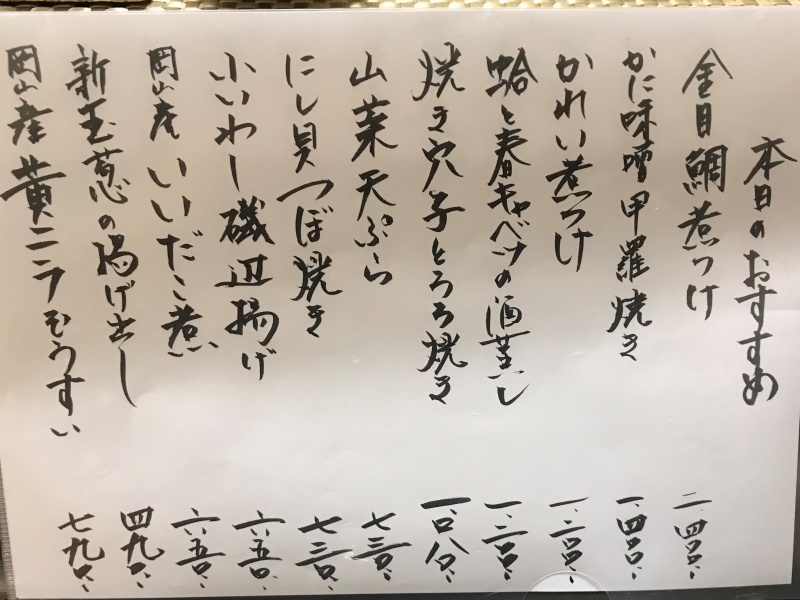 本日のおすすめ
金目鯛煮つけ 二、四〇〇、
かに味噌甲羅焼き 一、四〇〇、
かれい煮つけ 一、二〇〇、
蛤と春キャベツの酒蒸し 一、二〇〇、
焼き穴子とろろ焼き 一、〇八〇、
山菜天ぷら 七三〇、
にし貝つぼ焼き 七三〇、
小いわし磯辺揚げ 六五〇、
岡山産いいだこ煮 六五〇、
新玉葱の揚げ出し 四九〇、
岡山産黄ニラぞうすい 七九〇、